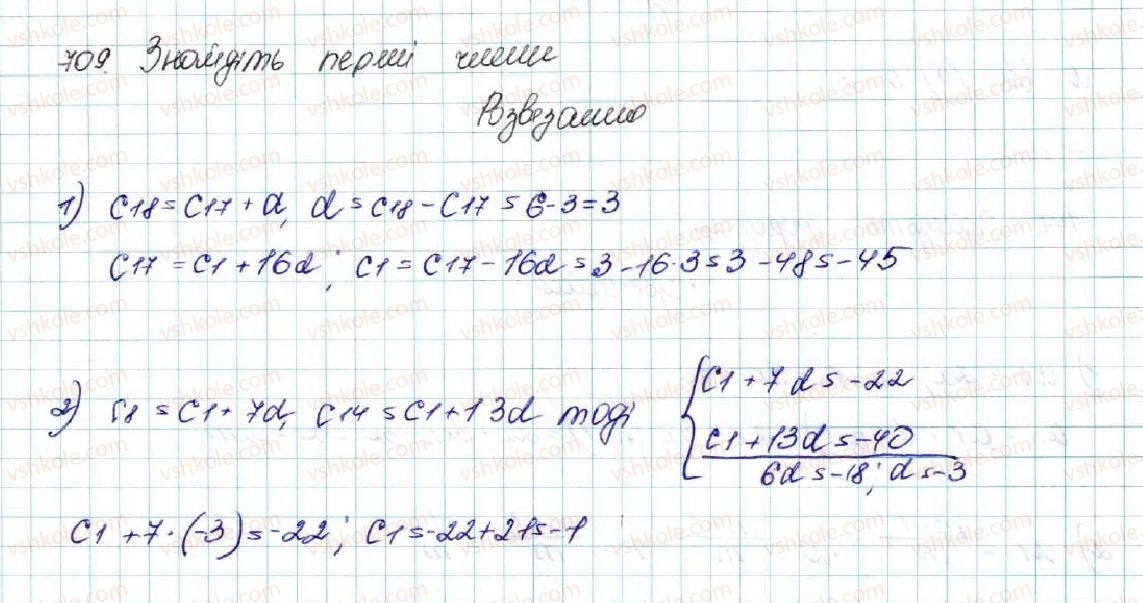 709. Знайдіть перші члени
Розв'язання
1) c18 = c17 + d, d = c18 - c17 = 6 - 3 = 3
c17 = c1 + 16d; c1 = c17 - 16d = 3 - 16·3 = 3 - 48 = -45
2) c8 = c1 + 7d, c14 = c1 + 13d тоді
c1 + 7d = -22
c1 + 13d = -40
6d = -18; d = -3
c1 + 7·(-3) = -22; c1 = -22 + 21 = -1